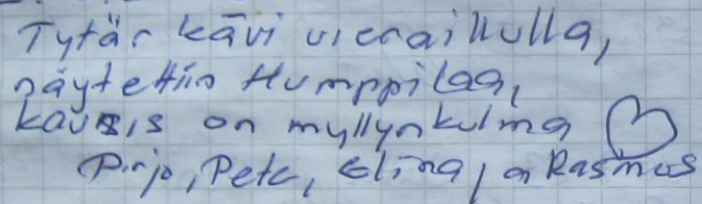 Tytär kävi vierailulla,
näytettiin Humppilaa,
kaunis on myllynkulma ♡
Pirjo, Pete, Elina, ja Rasmus